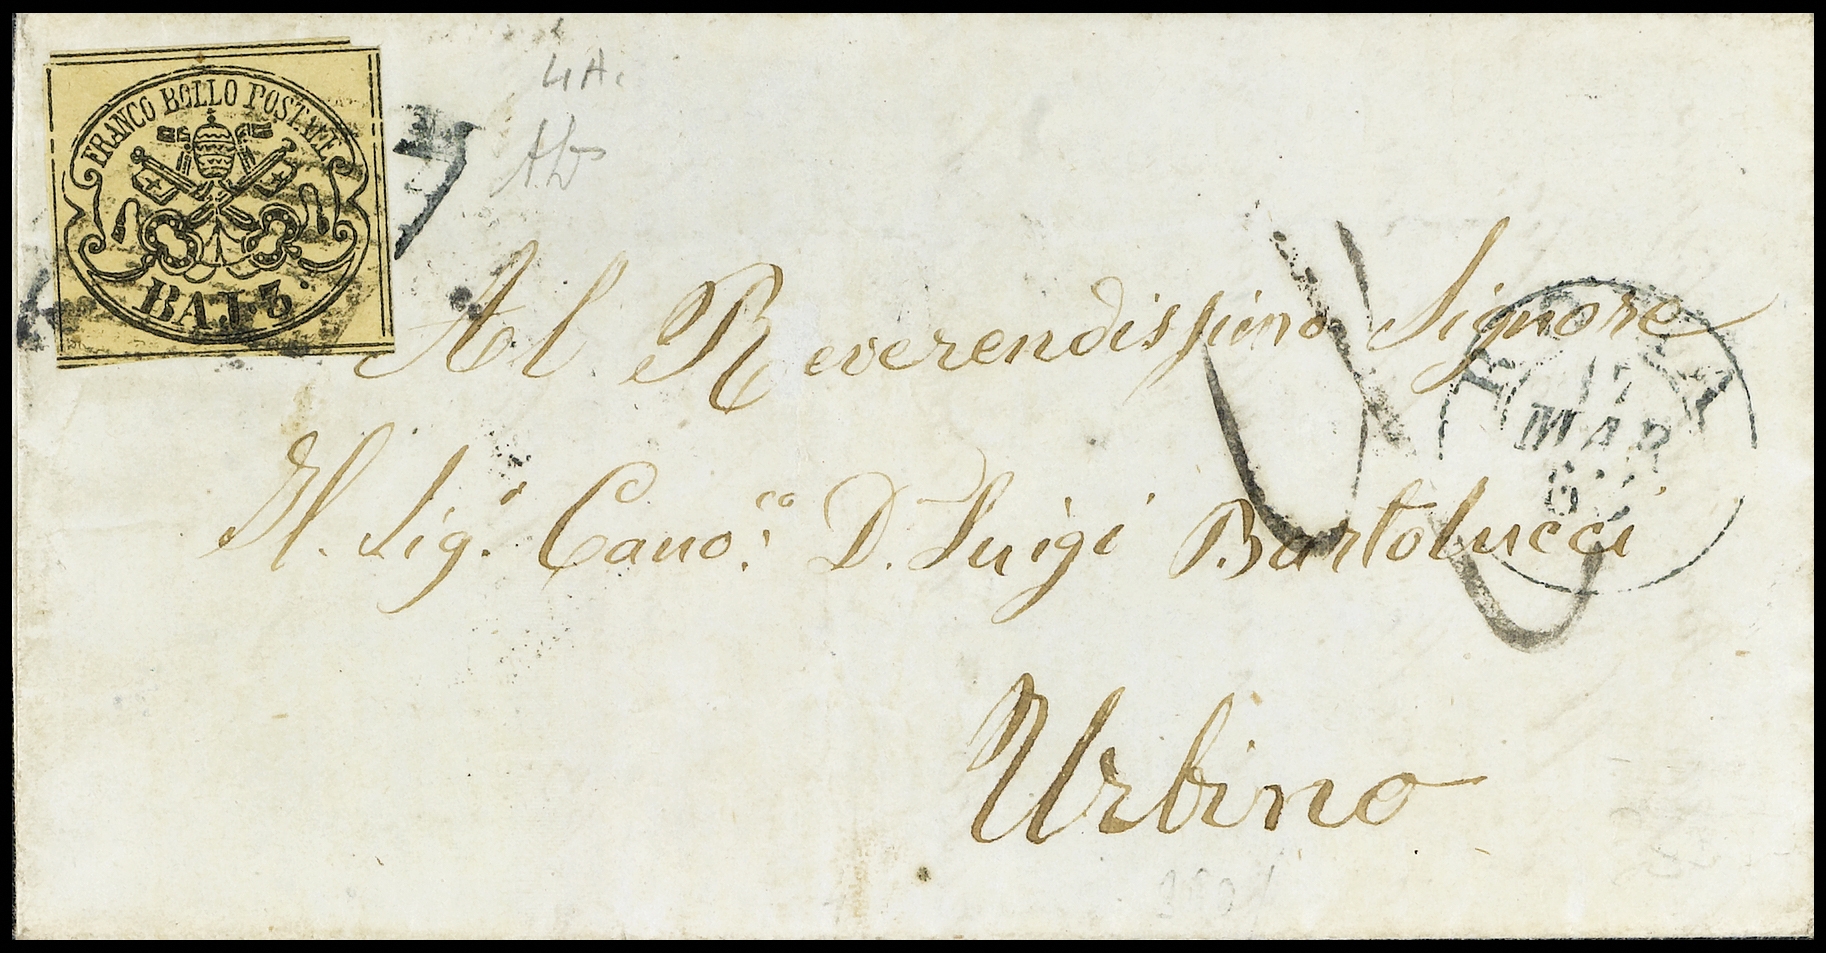 FRANCO BOLLO POSTALE
BAJ. 3.
4A.
Al Reverendissimo Signore
ROMA
17
MAR
Il. Sig.r Cano.co D. Luigi Bartolucci
Urbino